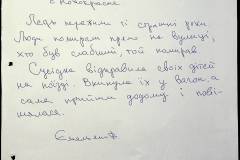 с Пококрасне
Ледь пережили ті страшні роки.
Люди помирали прямо на вулиці,
хто був слабший, той помирав.
Сусідка відправила своїх дітей
на поїзді. Вкинула їх у вагон, а
сама прийшла додому і пові-
шалася.